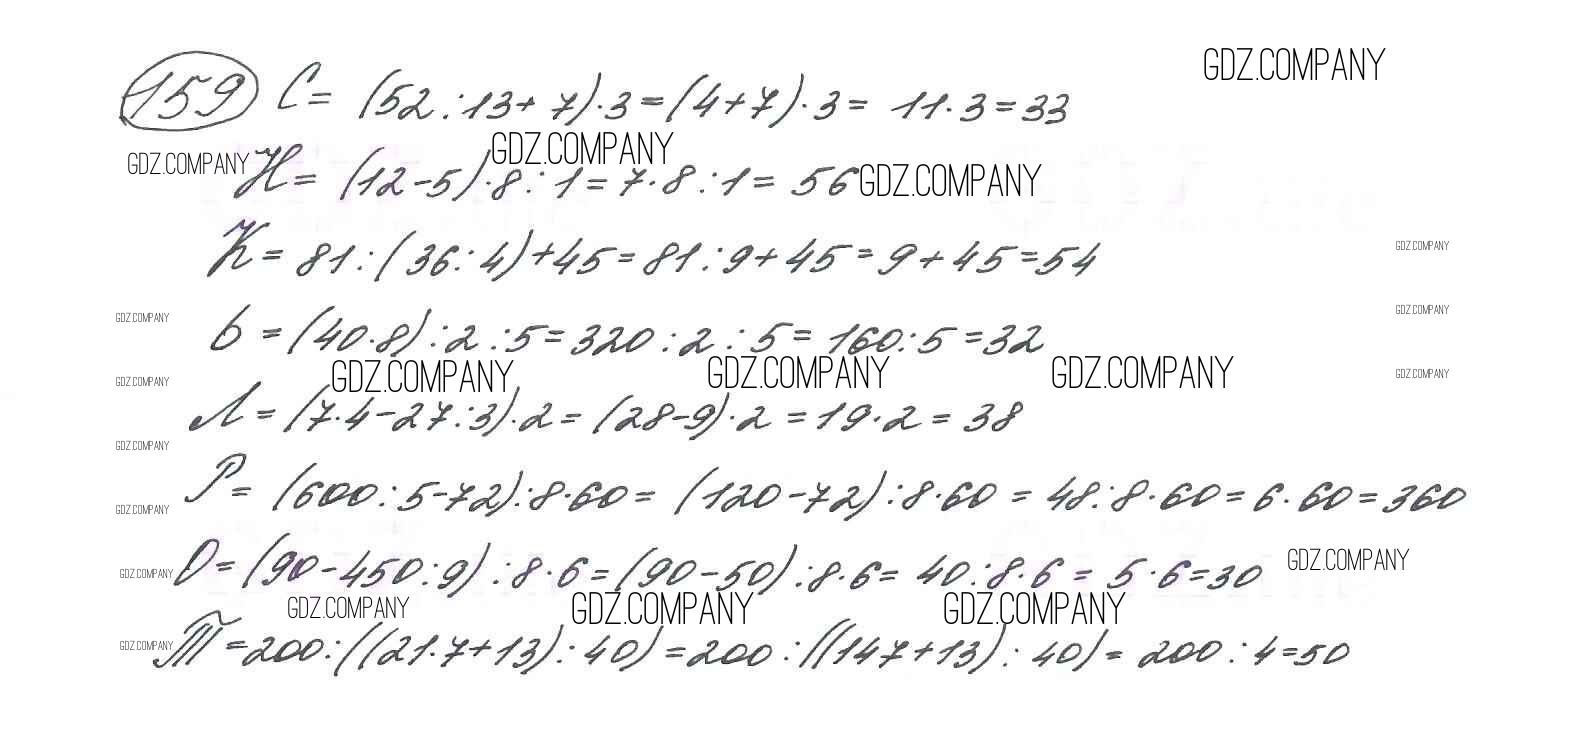 GDZ.COMPANY
159 С = (52 : 13 + 7) · 3 = (4 + 7) · 3 = 11 · 3 = 33
GDZ.COMPANY GDZ.COMPANY
Н = (12 - 5) · 8 : 1 = 7 · 8 : 1 = 56 GDZ.COMPANY
К = 81 : (36 : 4) + 45 = 81 : 9 + 45 = 9 + 45 = 54
GDZ.COMPANY
GDZ.COMPANY GDZ.COMPANY
Ь = (40 · 8) : 2 : 5 = 320 : 2 : 5 = 160 : 5 = 32
GDZ.COMPANY GDZ.COMPANY GDZ.COMPANY GDZ.COMPANY GDZ.COMPANY
Л = (7 · 4 - 27 : 3) · 2 = (28 - 9) · 2 = 19 · 2 = 38
GDZ.COMPANY
Р = (600 : 5 - 72) : 8 · 60 = (120 - 72) : 8 · 60 = 48 : 8 · 60 = 6 · 60 = 360
GDZ.COMPANY
GDZ.COMPANY О = (90 - 450 : 9) : 8 · 6 = (90 - 50) : 8 · 6 = 40 : 8 · 6 = 5 · 6 = 30 GDZ.COMPANY
GDZ.COMPANY GDZ.COMPANY GDZ.COMPANY
GDZ.COMPANY Т = 200 : ((21 · 7 + 13) : 40) = 200 : ((147 + 13) : 40) = 200 : 4 = 50